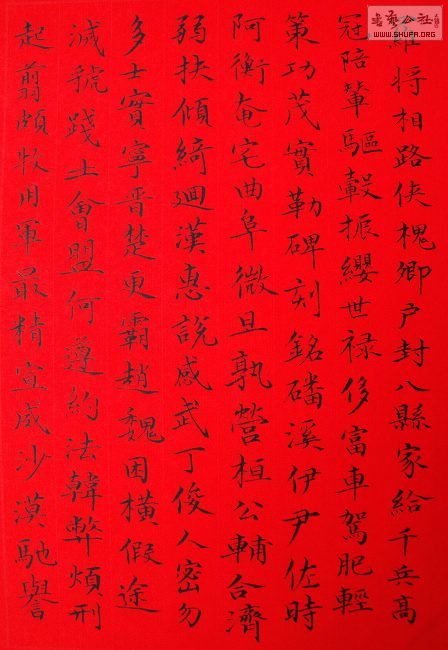 書藝公社
WWW.SHUFA.ORG
羅將相路俠槐卿戶封八縣家給千兵高
冠陪輦驅轂振纓世祿侈富車駕肥輕
策功茂實勒碑刻銘磻溪伊尹佐時
阿衡奄宅曲阜微旦孰營桓公輔合濟
弱扶傾綺迴漢惠說感武丁俊人密勿
多士實寧晉楚更霸趙魏困橫假途
滅虢踐土會盟何遵約法韓弊煩刑
起翦頗牧用軍最精宣威沙漠馳譽